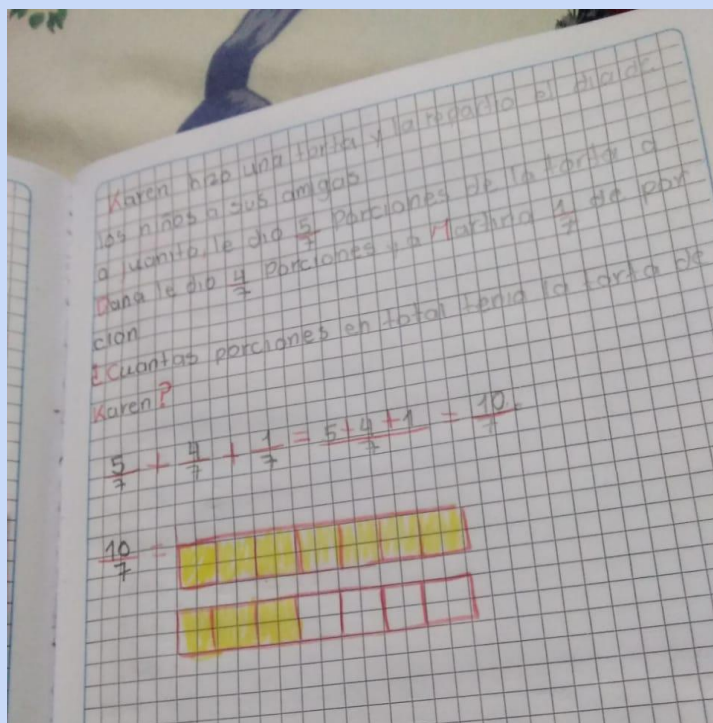 Karen hizo una torta y la repartio el dia de
los niños a sus amigas
a juanito, le dio 5/7 Porciones de la torta a
Dana le dio 4/7 Porciones y a Martina 1/7 de por
cion
¿Cuantas porciones en total tenia la torta de
Karen?
5/7 + 4/7 + 1/7 = 5+4+1/7 = 10/7
10/7 =